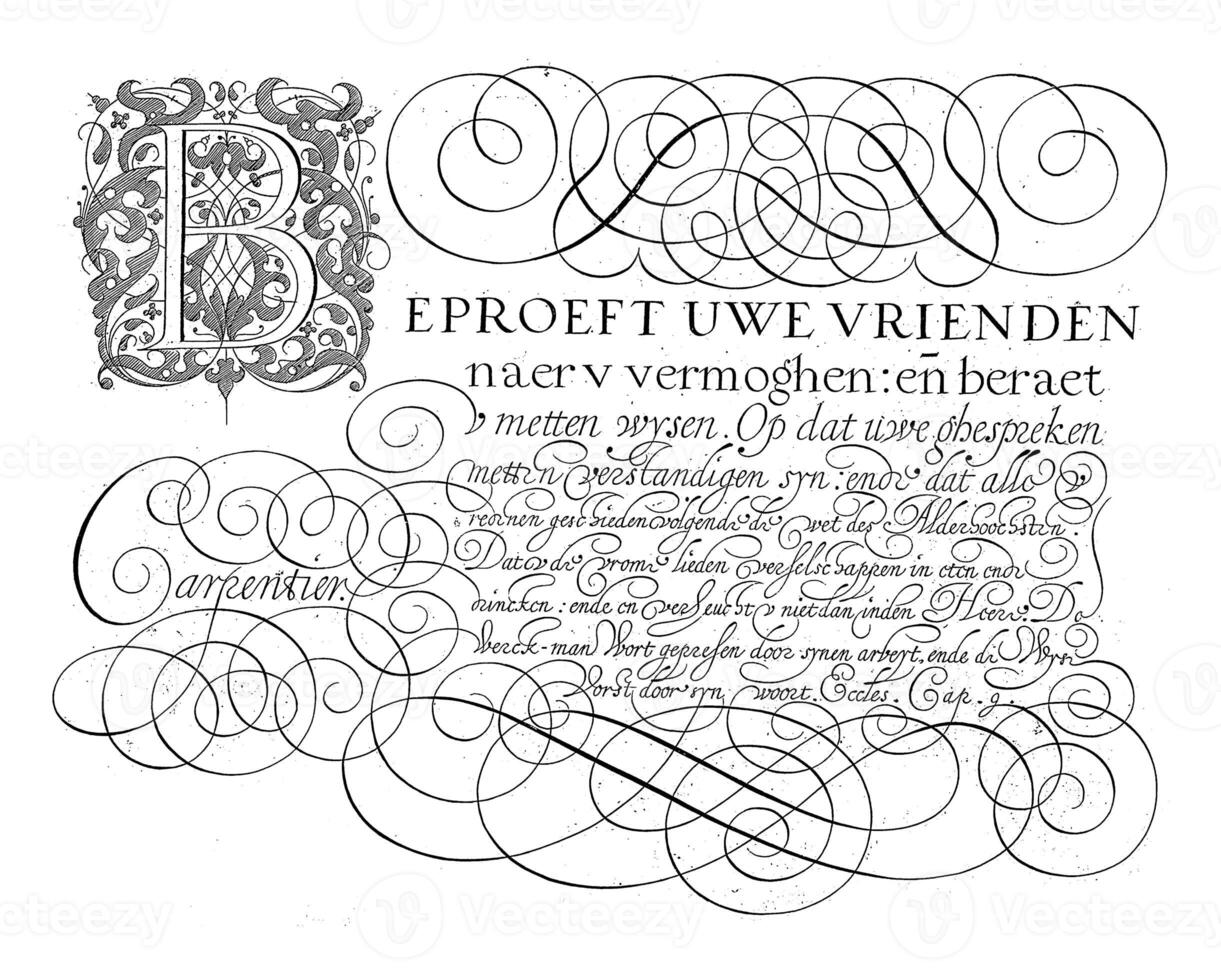 BEPROEFT UWE VRIENDEN
naer v vermoghen: en̄ beraet
v metten wysen. Op dat uwe ghespreken
metten verstandigen syn: ende dat alle v
redenen geschieden volgende de wet des Alderhoochsten.
Dat v de vrome lieden verselschappen in eten ende
drincken: ende en verheucht v niet dan inden Heere. De
Werck-man Wort gepresen door synen arbeyt, ende de Wyse
Vorst door syn woort. Eccles. Cap. 9.
Carpentier.